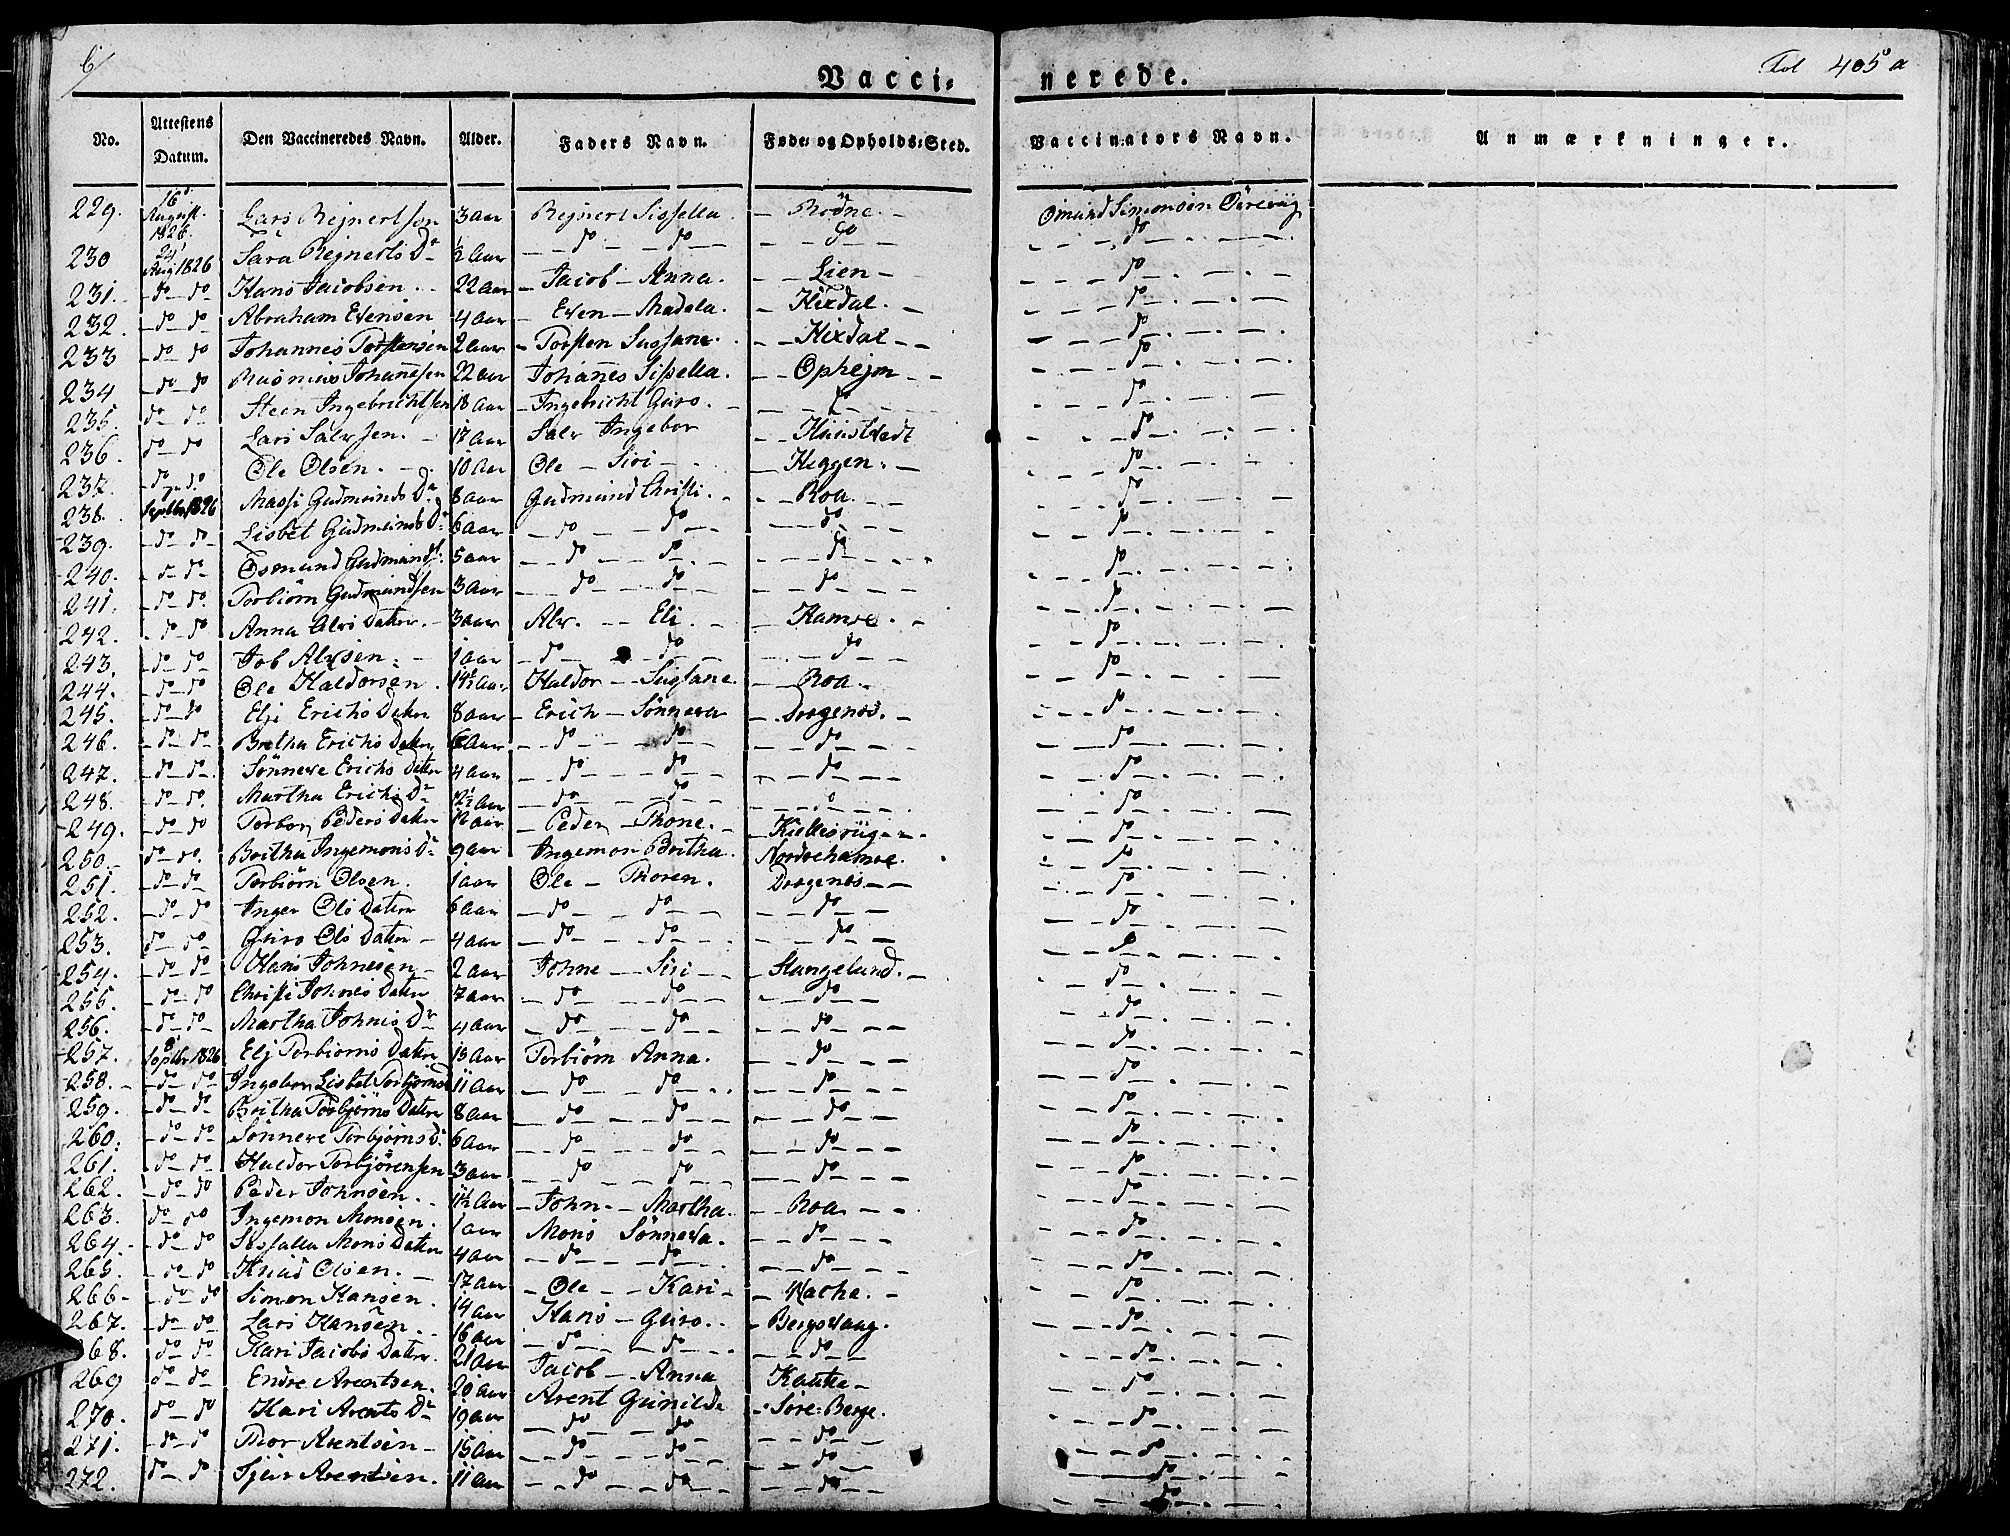 6/
Vacci=nerede.
Fol 405 a
No. | Attestens Datum. | Den Vaccineredes Navn. | Alder. | Faders Navn. | Føde= og Opholds=Sted. | Vaccinators Navn. | Anmærkninger.
229. | 16 August. 1826. | Lars Rejnertsen | 3 aar | Rejnert Sissella. | Rødne. | Omund Simonsen
230 | 24 Aug 1826 | Sara Rejnerts Dr | ½ aar | do do | do | do
231. | do do | Hans Jacobsen | 22 aar | Jacob Anna. | Lien | do
232. | do do | Abraham Evensen | 4 aar | Even Madela. | Hixdal. | do
233 | do do | Johannes Torstensen | 2 aar | Torsten Sussane. | Hixdal | do
234 | do do | Rasmus Johannesen | 22 aar | Johanes Sissella. | Ophejm | do
235. | do do | Steen Ingebrichtsen | 18 aar | Ingebricht Guro. | do | do
236. | do do | Lars Salvesen. | 17 aar | Salv Ingebor | | do
237. | do do | Ole Olsen. | 10 aar | Ole Siri | Heggen. | do
238. | 7 Septbr 1826 | Massi Gudmunds Dr | 8 aar | Gudmund Christi. | Roa. | do
239. | do do | Lisbet Gudmunds Dr | 6 aar | do do | do | do
240. | do do | Osmund Gudmunds. | 5 aar | do do | do | do
241. | do do | Torbiørn Gudmundsen | 3 aar | do do | do | do
242. | do do | Anna Alvs Datter. | 3 aar | Alv. Eli. | Hamre. | do
243. | do do | Job Alvsen. | 1 aar | do do | do | do
244. | do do | Ole Haldorsen. | 14½ aar | Haldor Sussane. | Roa. | do
245. | do do | Eli Erichs Datter | 8 aar | Erich Sønneva | Dragenes. | do
246. | do do | Bretha Erichs Datter | 6 aar | do do | do | do
247. | do do | Sønneve Erichs Datter | 4 aar | do do | do | do
248. | do do | Martha Erichs Dr | 2½ aar | do do | do | do
249. | do do | Torbor Peders Datter | 12 aar | Peder Thone. | | do
250. | do do | Britha Ingemons Dr | 9 aar | Ingemon Britha. | Nordrehamre. | do
251. | do do | Torbiørn Olsen. | 1 aar | Ole Thoren. | Dragenes | do
252. | do do | Inger Ols Datter | 6 aar | do do | do | do
253. | do do | Guro Ols Datter | 4 aar | do do | do | do
254. | do do | Hans Johnesen | 2 aar | Johne Siri | Stangeland. | do
255. | do do | Christi Johnes Datter | 7 aar | do do | do | do
256. | do do | Martha Johnes Dr | 4 aar | do do | do | do
257. | 8 Septbr 1826 | Elj Torbiorns Datter | 13 aar | Torbiørn Anna. | do | do
258. | do do | Ingebor Lisbet Torbjørnsd | 11 aar | do do | do | do
259. | do do | Britha Torbjørns Datter | 8 aar | do do | do | do
260. | do do | Sønneve Torbjørns D. | 6 aar | do do | do | do
261. | do do | Haldor Torbjørensen | 3 aar | do do | do | do
262. | do do | Peder Johnsen. | 1½ aar | John Martha. | Roa. | do
263. | do do | Ingemon Monsen. | 1 aar | Mons Sønneva. | do | do
264. | do do | Sissalla Mons Datter | 4 aar | do do | do | do
265. | do do | Knud Olsen. | 17 aar | Ole Kari | | do
266. | do do | Simon Hansen. | 14 aar | Hans Guro. | | do
267. | do do | Lars Hansen. | 16 aar | do do | do | do
268. | do do | Kari Jacobs Datter. | 21 aar | Jacob Anna | | do
269 | do do | Endre Arentsen. | 20 aar | Arent Gunilde | Søre=Berge. | do
270. | do do | Kari Arents Dr | 19 aar | do do | do | do
271. | do do | Thor Arentsen | 15 aar | do do | do | do
272. | do do | Sjur Arentsen. | 11 aar | do do | do | do